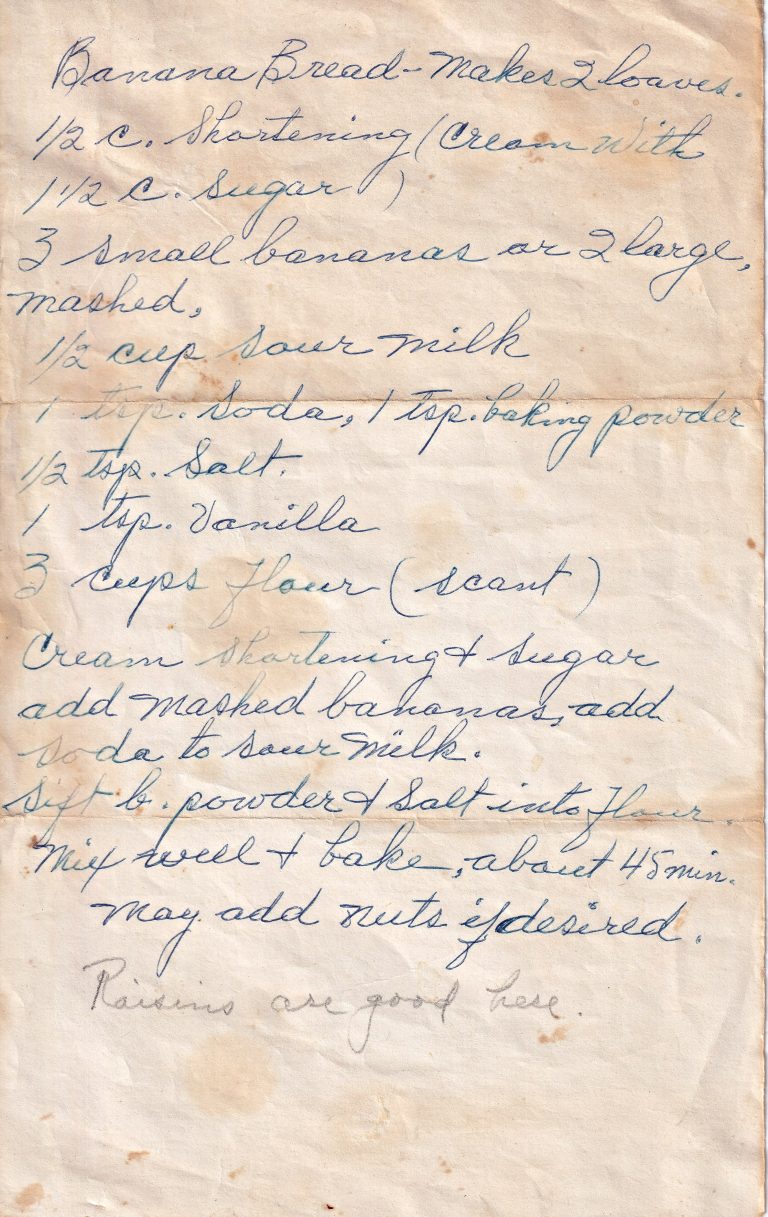 Banana Bread - Makes 2 loaves.
1/2 c. Shortening (Cream With
1 1/2 c. Sugar )
3 small bananas or 2 large,
mashed,
1/2 cup sour milk
1 tsp. Soda, 1 tsp. baking powder
1/2 tsp. Salt.
1 tsp. Vanilla
3 cups flour (scant)
Cream shortening & sugar
add mashed bananas, add
soda to sour milk.
Sift b. powder & Salt into flour.
Mix well & bake, about 45 min.
May add nuts if desired.
Raisins are good here.